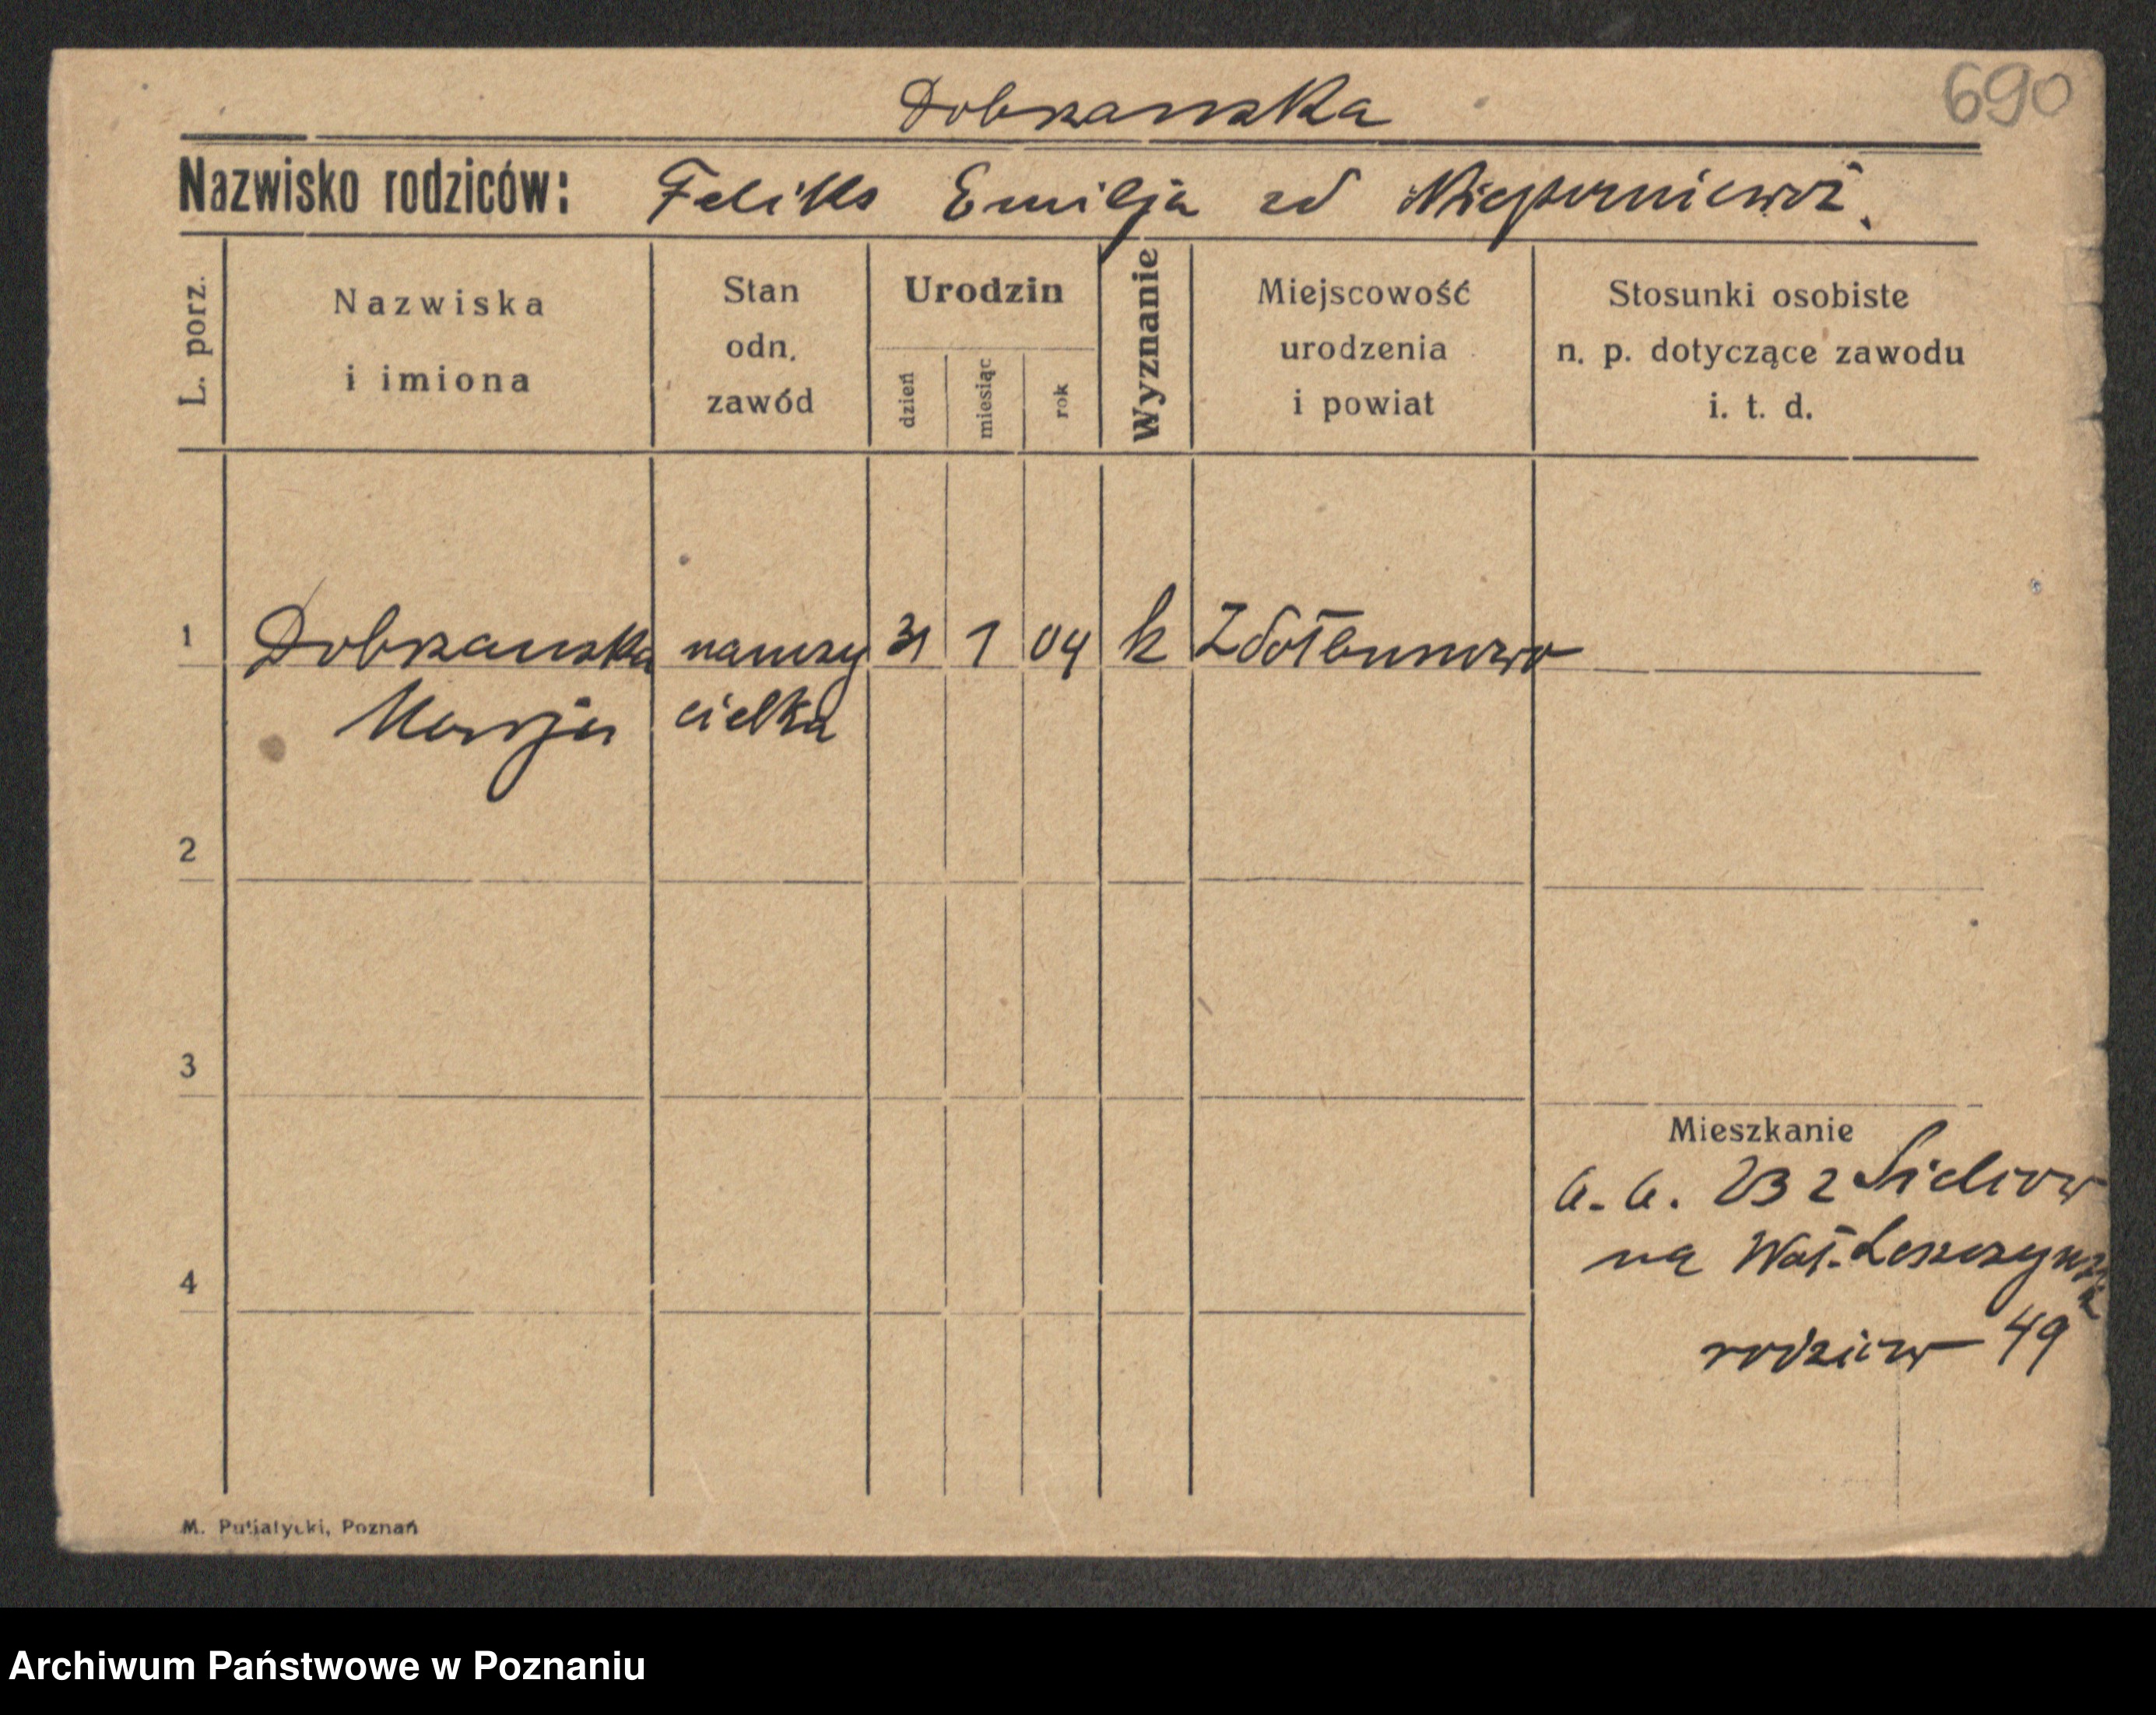 690
Dobrzanska
Nazwisko rodziców: Feliks Emilja zd
L. porz.
Nazwiska i imiona
Stan odn. zawód
Urodzin
dzień miesiąc rok
Wyznanie
Miejscowość urodzenia i powiat
Stosunki osobiste n. p. dotyczące zawodu i. t. d.
1 Dobrzanska nauczy 31 1 04 k Zdołbunowo
Marja cielka
2
3
Mieszkanie
232
na Wał. Leszczynska
4
rodziców 49
M. Putiatycki, Poznań
Archiwum Państwowe w Poznaniu